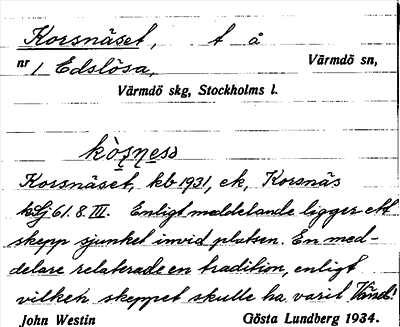 Korsnäset, t å
nr 1 Edslösa, Värmdö sn,
Värmdö skg, Stockholms l.
kòsṇess
Korsnäset, kb 1931, ek, Korsnäs
hSj 61.8.III. Enligt meddelande ligger ett
skepp sjunket invid platsen. En med-
delare relaterade en tradition, enligt
vilken skeppet skulle ha varit Vänd!
John Westin Gösta Lundberg 1934.